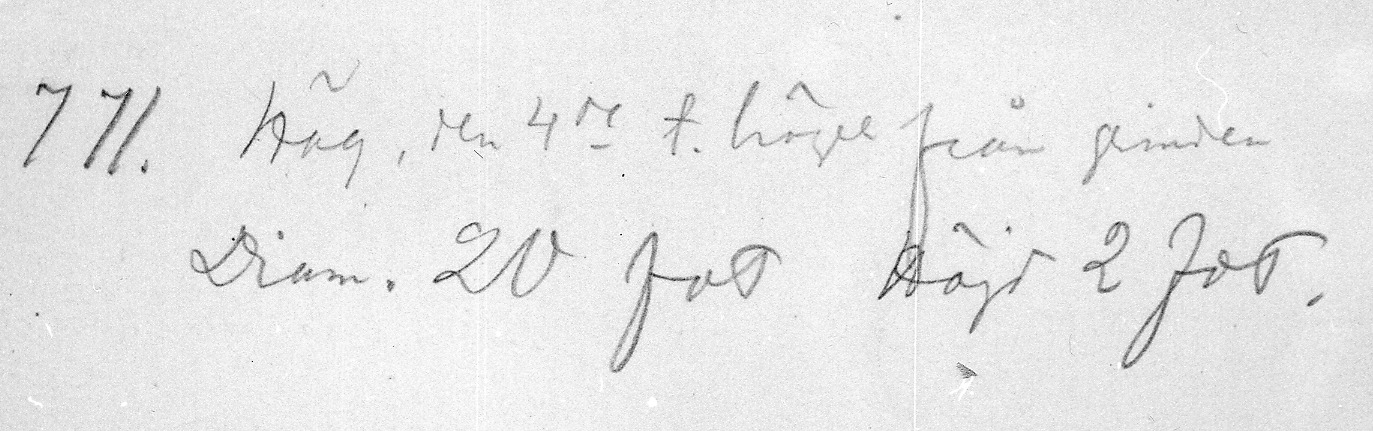 771. Hög, den 4de t. höger från grinden
Diam. 20 fot Höjd 2 fot.